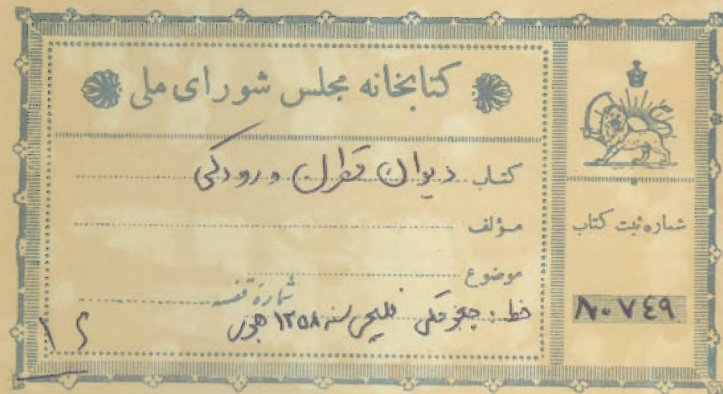 کتابخانه مجلس شورای ملی
کتاب دیوان قطران و رودکی
مؤلف
موضوع
شماره قفسه
خط: جعفر سنه ۱۲۵۸ هجری
شماره ثبت کتاب
۸۰۷۴۹